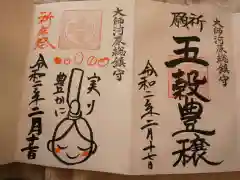 祈願
五穀豊穣
大師河原総鎮守
令和二年二月十七日
大師河原総鎮守
祈年祭
実り
豊かに
令和二年二月十七日